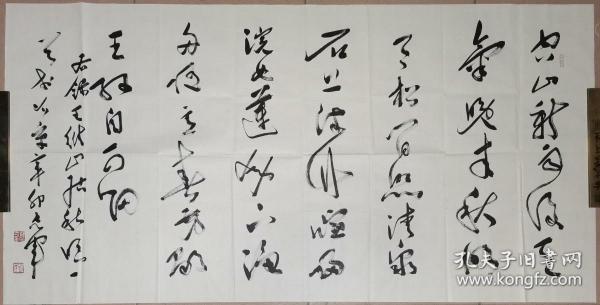 空山新雨後天
氣晚来秋明
月松间照清泉
石上流竹喧歸
浣女蓮动下渔
舟随意春芳歇
王孫自可留
右録王维山居秋暝一
辛卯
孔夫子旧书网
www.kongfz.com